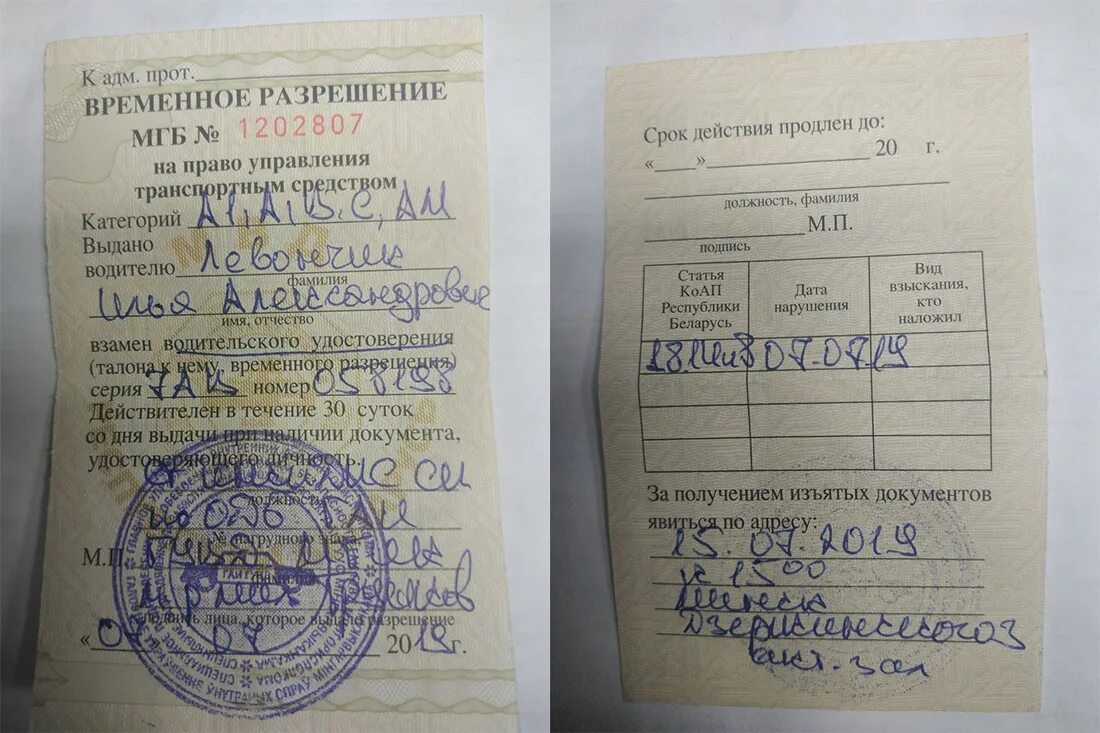 К адм. прот.
ВРЕМЕННОЕ РАЗРЕШЕНИЕ
МГБ № 1202807
на право управления
транспортным средством
Категорий А1, А, В, С, АМ
Выдано
водителю Левончик
фамилия
Илья Александрович
имя, отчество
взамен водительского удостоверения
(талона к нему, временного разрешения)
серия 7АВ номер 058198
Действителен в течение 30 суток
со дня выдачи при наличии документа,
удостоверяющего личность.
ст инсп
должность
по
№ нагрудного знака
М.П.
фамилия
подпись лица, которое выдало разрешение
« 07 » 07 2019 г.
ГАИ
Срок действия продлен до:
« » 20 г.
должность, фамилия
М.П.
подпись
Статья КоАП Республики Беларусь
Дата нарушения
Вид взыскания, кто наложил
18.14 ч3 07.07.19
За получением изъятых документов
явиться по адресу:
15.07.2019
к 1500
Минск
Дзержинского
акт. зал